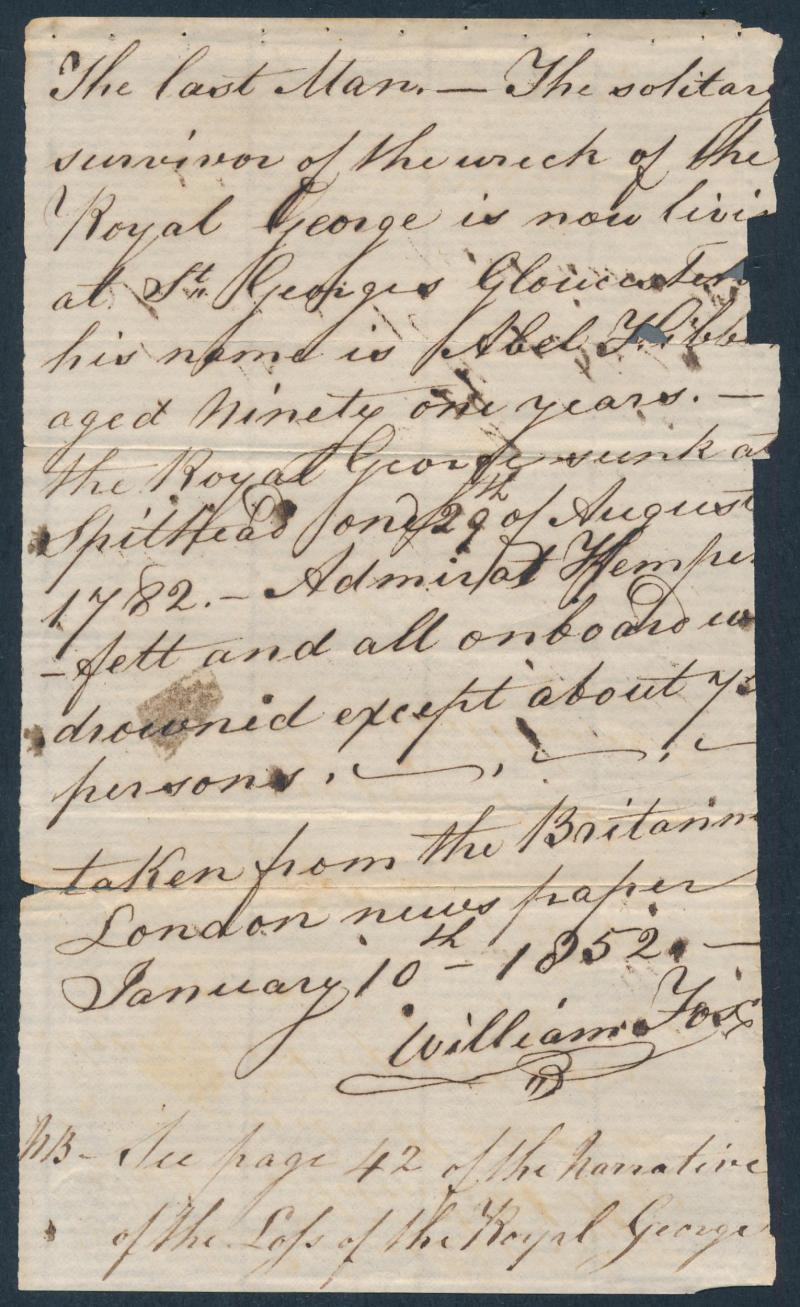 The last Man. — The solitary
survivor of the wreck of the
Royal George is now livi
at St. Georges Gloucester
his name is Abel Hibb
aged Ninety one years. —
the Royal George sunk at
Spithead on 29th of August
1782. — Admiral Kempe
-felt and all onboard w
drowned except about 7
persons.
taken from the Britann
London news paper
January 10th - 1852. —
William Fox
NB - See page 42 of the Narrative
of the Loss of the Royal George